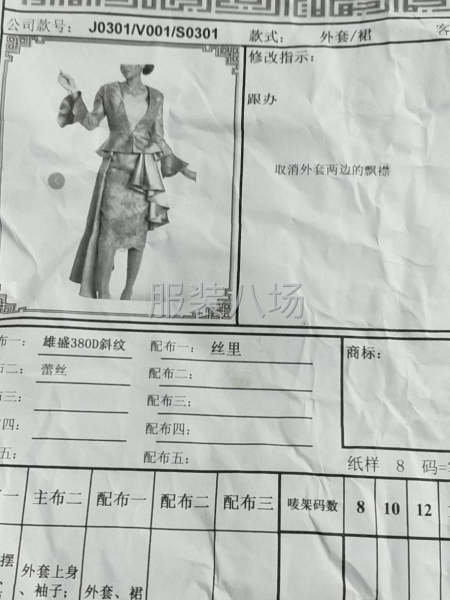 公司款号: J0301/V001/S0301 款式: 外套/裙 客
修改指示:
跟办
取消外套两边的飘襟
服装八场
布一: 雄盛380D斜纹 配布一: 丝里 商标:
布二: 蕾丝 配布二:
布三: 配布三:
布四: 配布四:
布五: 配布五: 纸样 8 码=
一 主布二 配布一 配布二 配布三 唛架码数 8 10 12
摆 外套上身
、袖子; 外套、裙